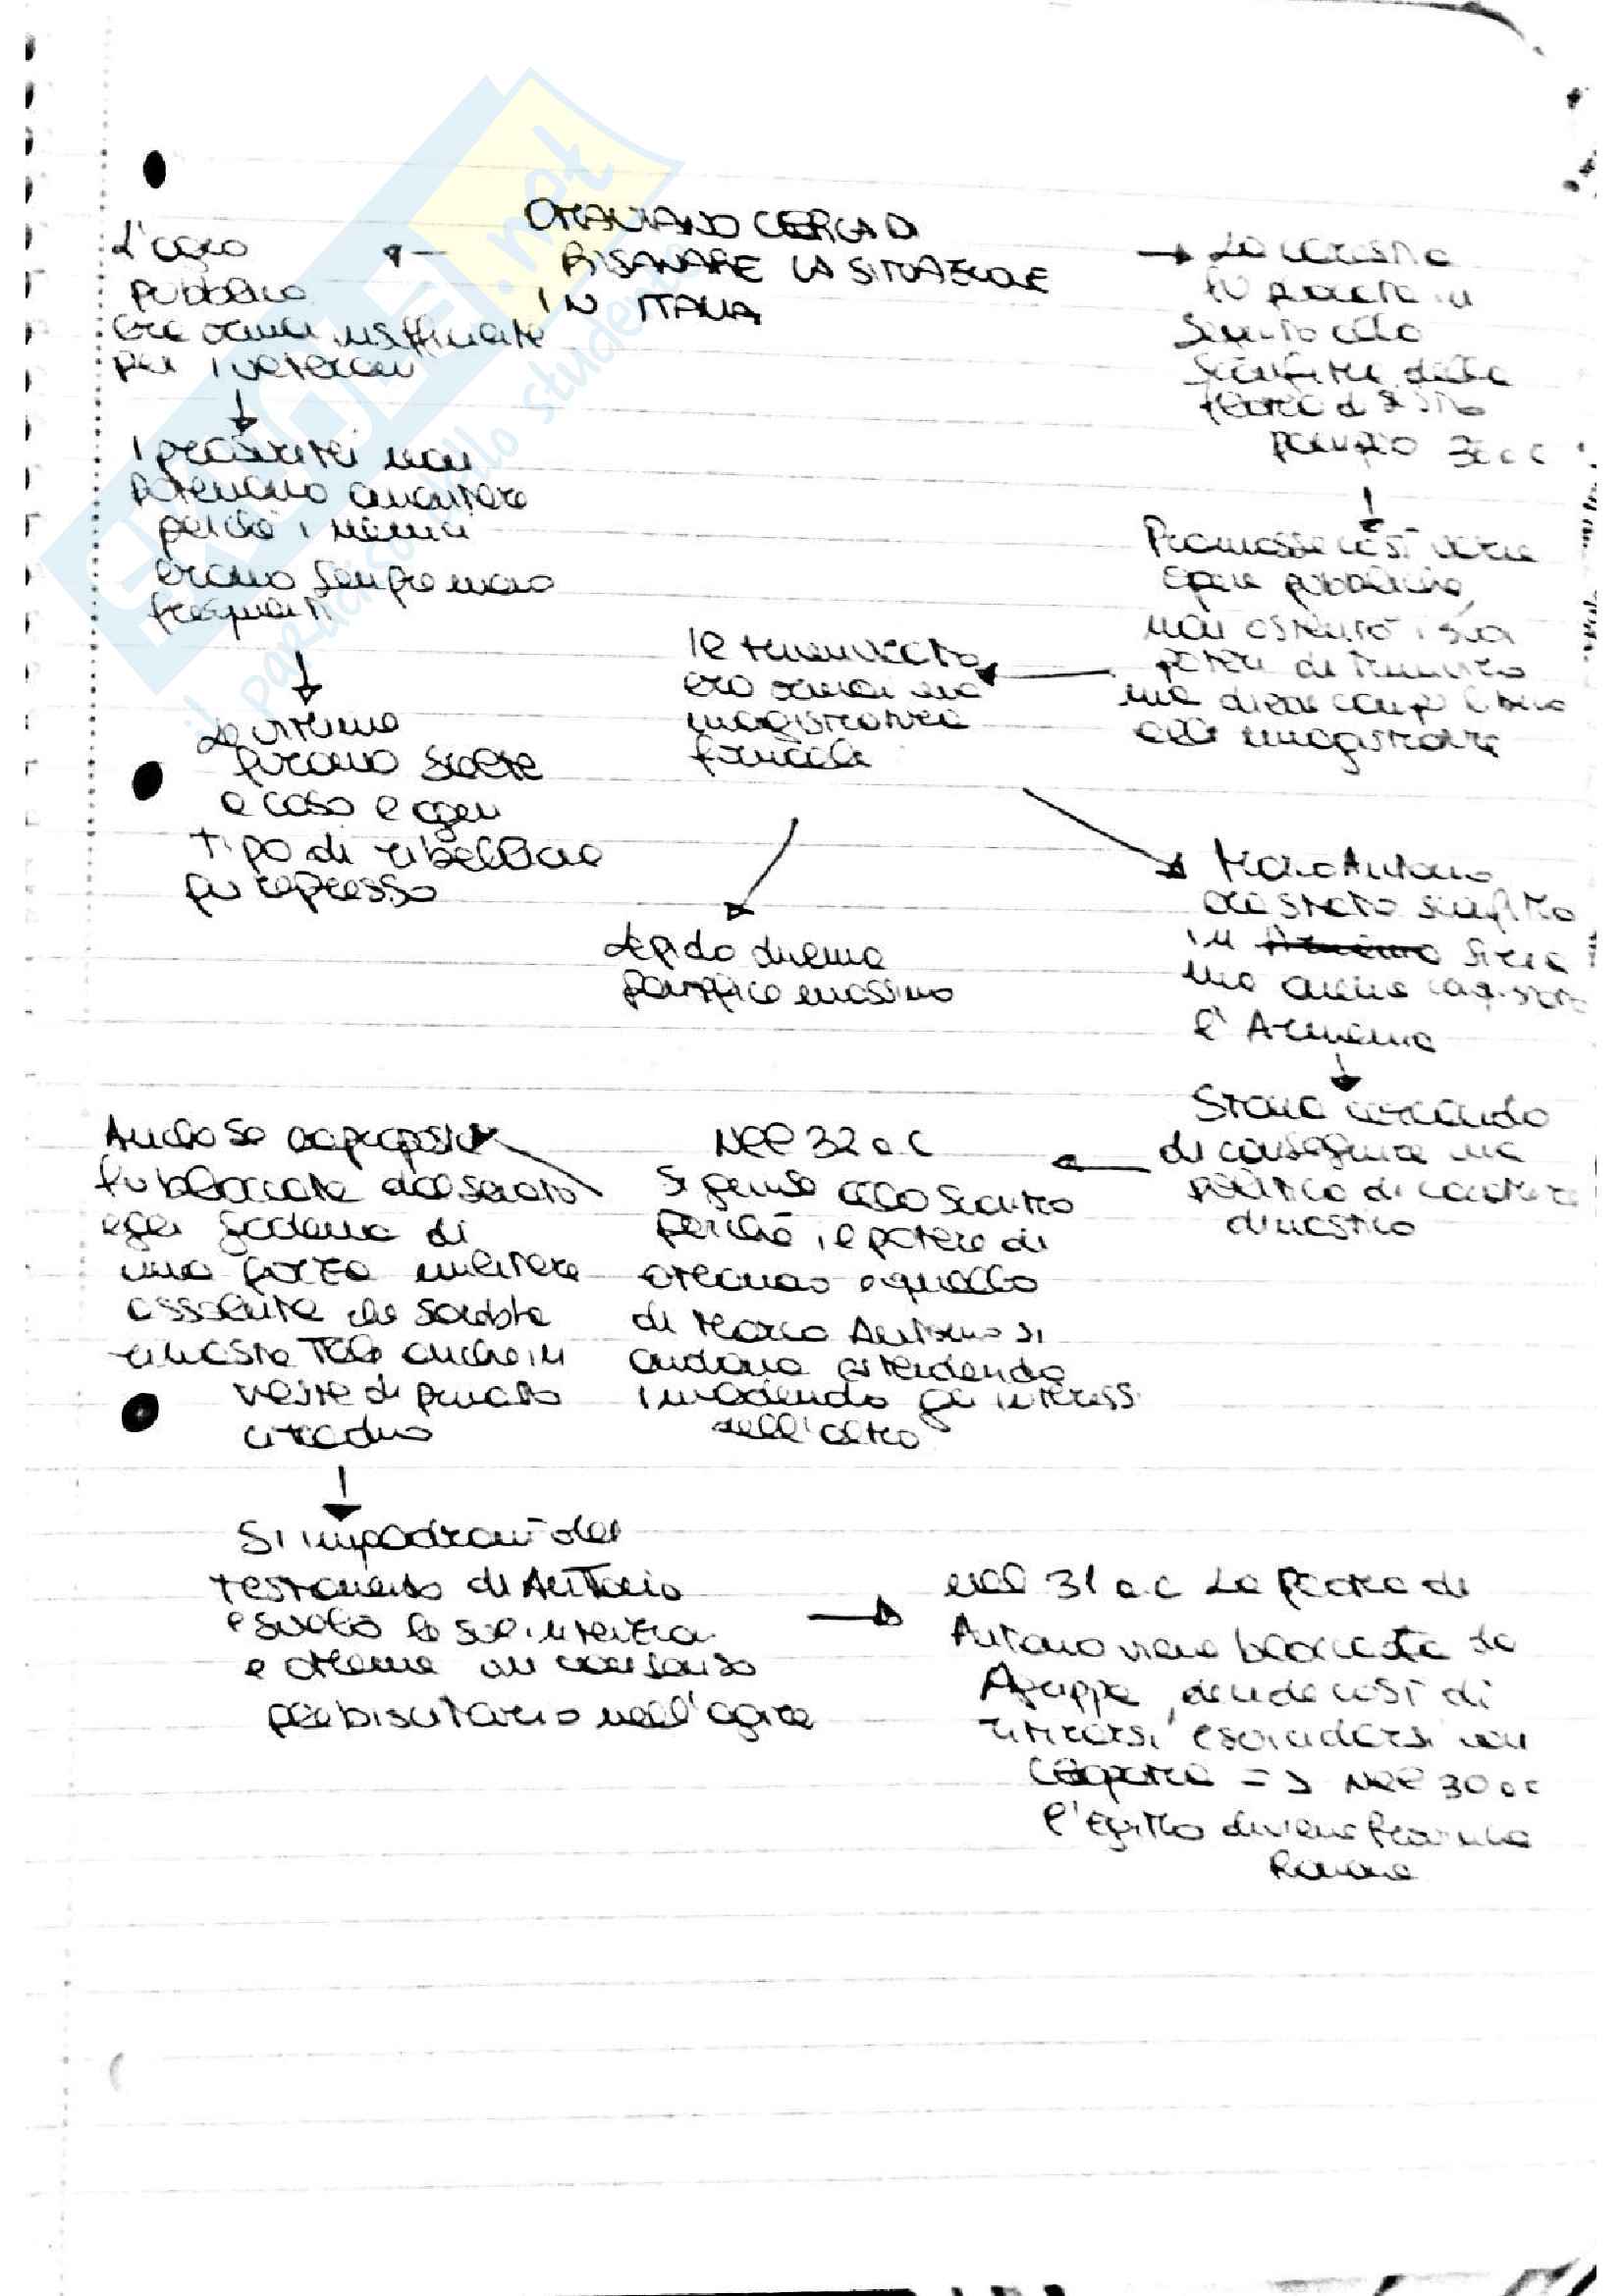 OTTAVIANO CERCA DI
RISANARE LA SITUAZIONE
IN ITALIA
L'agro
pubblico
era ormai insufficiente
per i veterani
I proscritti non
potevano aumentare
perché i nemici
erano sempre meno
frequenti
Le vittime
furono scelte
a caso e ogni
tipo di ribellione
fu represso
La carestia
fu placata in
seguito alla
sconfitta della
flotta di Sesto
Pompeo 36 a.C
Promosse così varie
opere pubbliche,
non ostentò i suoi
poteri di triumviro
ma diede campo libero
alle magistrature
Il triumvirato
era ormai una
magistratura
formale
Lepido diviene
pontefice massimo
Marco Antonio
era stato sconfitto
in Siria
ma aveva conquistato
l'Armenia
Stava cercando
di conseguire una
politica di carattere
dinastico
Nel 32 a.C
si giunse allo scontro
perché il potere di
Ottaviano e quello
di Marco Antonio si
andava estendendo
invadendo gli interessi
dell'altro
Anche se
dal senato
egli godeva di
una forza militare
assoluta che sarebbe
rimasta tale anche in
veste di privato
cittadino
Si impadronì del
testamento di Antonio
e svelò le sue intenzioni
e ottenne un consenso
plebiscitario nell'agire
nel 31 a.C La flotta di
Antonio viene bloccata da
Agrippa, decide così di
ritirarsi e suicidarsi con
Cleopatra => Nel 30 a.C
l'Egitto diviene provincia
Romana
SKUOLA.net
il paradiso dello studente